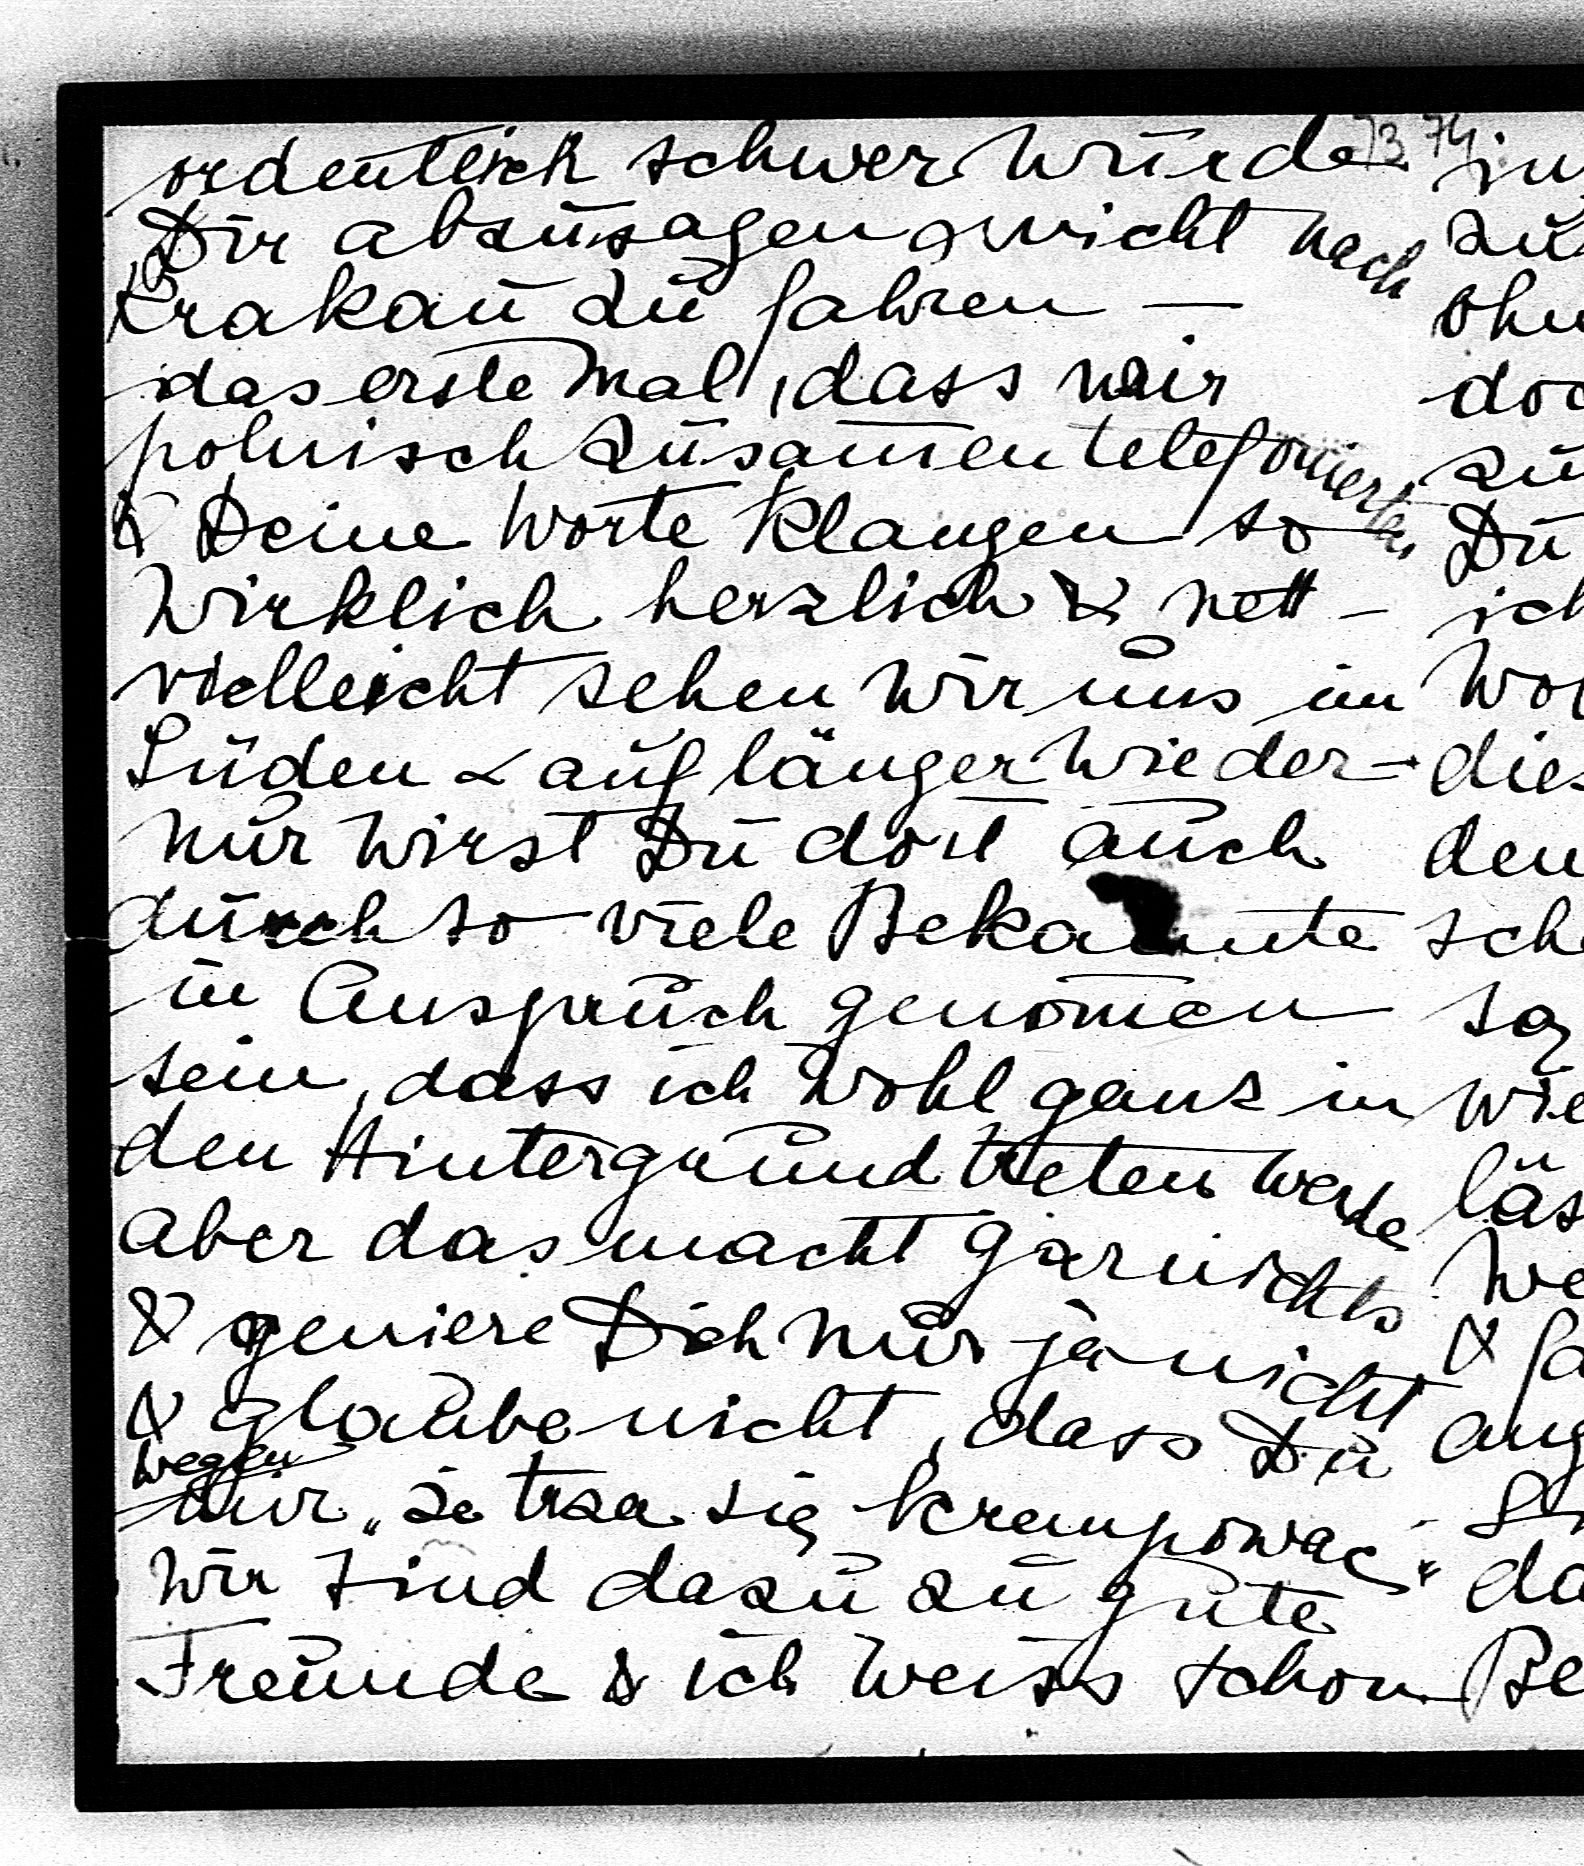 73 74
ordentlich schwer wurde
Dir abzusagen & nicht nach
Krakau zu fahren —
das erste Mal, dass wir
polnisch zusam̄en telefonierten,
& Deine Worte klangen so
wirklich herzlich & nett –
vielleicht sehen wir uns im
Süden & auf länger wieder –
nur wirst Du dort auch
durch so viele Bekannte
in Anspruch genom̄en
sein, dass ich wohl ganz in
den Hintergrund treten werde
aber das macht garnichts
& geniere Dich nur ja nicht
& glaube nicht, dass Du
wegen
mir „że trza się krempować"
wir sind dazu zu gute
Freunde & ich weiss schon
zu
doc
zu
Du
ich
dies
den
sch
wie
läs
we
& fa
da
Be